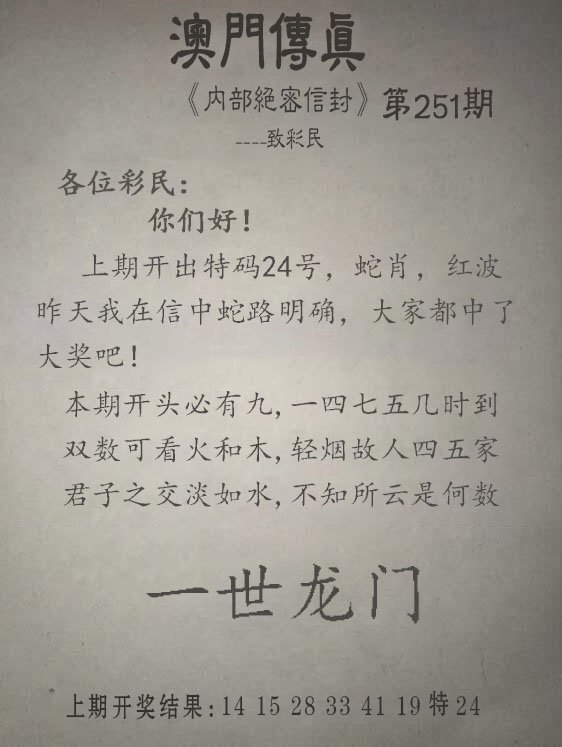 澳門傳眞
《内部絕密信封》第251期
----致彩民
各位彩民:
你们好!
上期开出特码24号，蛇肖，红波
昨天我在信中蛇路明确，大家都中了
大奖吧!
本期开头必有九,一四七五几时到
双数可看火和木,轻烟故人四五家
君子之交淡如水,不知所云是何数
一世龙门
上期开奖结果:14 15 28 33 41 19 特 24